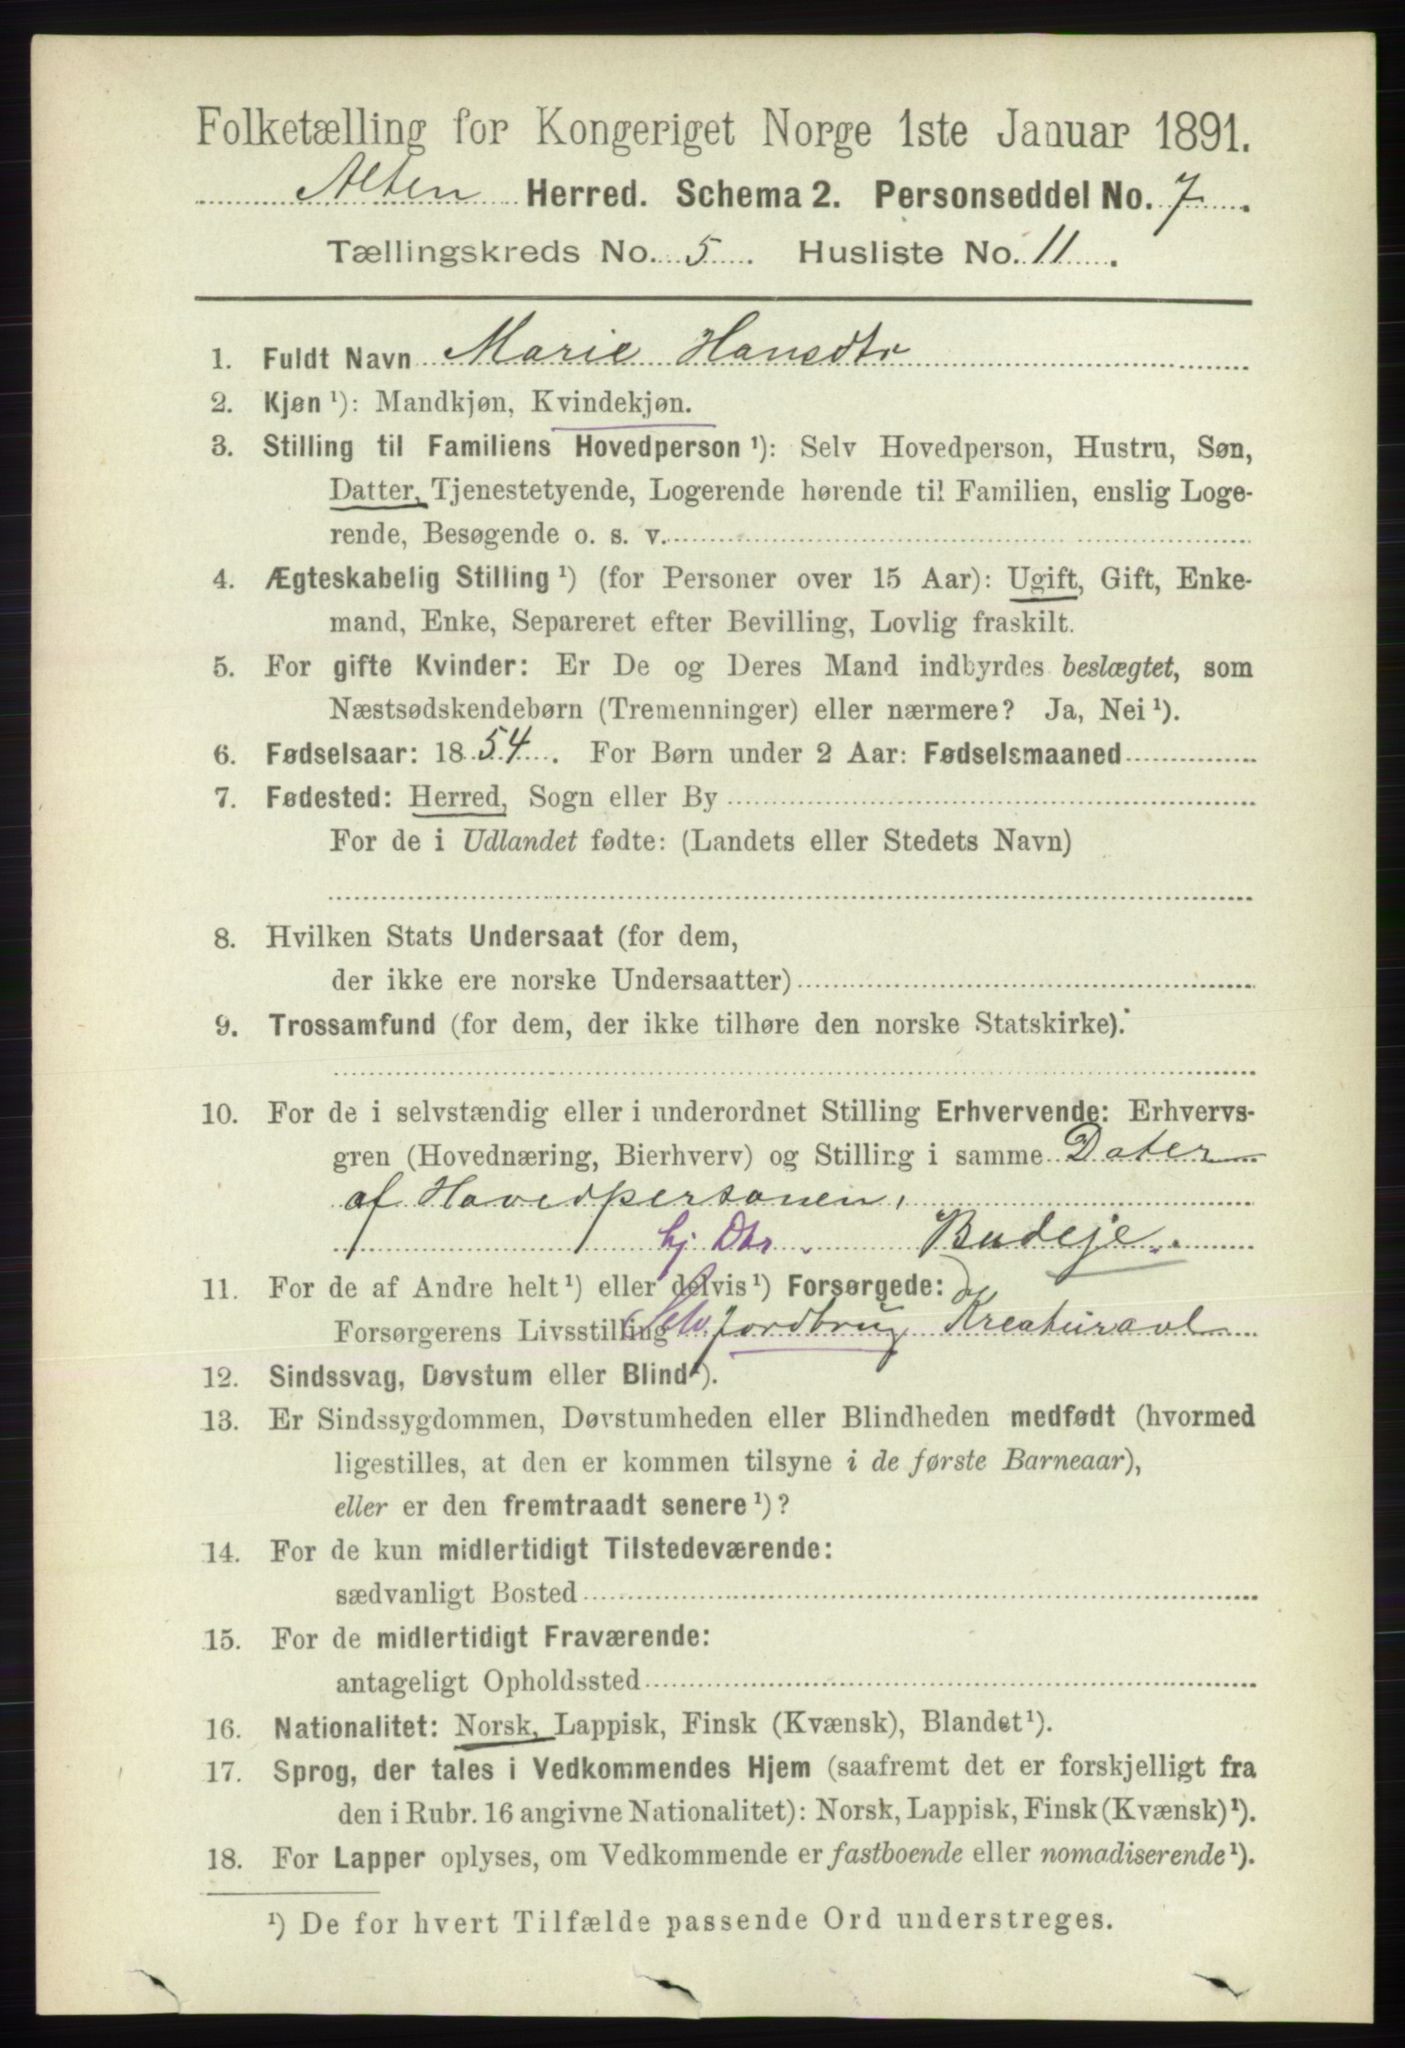 Folketælling for Kongeriget Norge 1ste Januar 1891.
Alten Herred. Schema 2. Personseddel No. 7.
Tællingskreds No. 5. Husliste No. 11.
1. Fuldt Navn Marie Hansdtr
2. Kjøn ¹): Mandkjøn, Kvindekjøn.
3. Stilling til Familiens Hovedperson ¹): Selv Hovedperson, Hustru, Søn,
Datter, Tjenestetyende, Logerende hørende til Familien, enslig Loge-
rende, Besøgende o. s. v.
4. Ægteskabelig Stilling ¹) (for Personer over 15 Aar): Ugift, Gift, Enke-
mand, Enke, Separeret efter Bevilling, Lovlig fraskilt.
5. For gifte Kvinder: Er De og Deres Mand indbyrdes beslægtet, som
Næstsødskendebørn (Tremenninger) eller nærmere? Ja, Nei ¹).
6. Fødselsaar: 1854. For Børn under 2 Aar: Fødselsmaaned
7. Fødested: Herred, Sogn eller By
For de i Udlandet fødte: (Landets eller Stedets Navn)
8. Hvilken Stats Undersaat (for dem,
der ikke ere norske Undersaatter)
9. Trossamfund (for dem, der ikke tilhøre den norske Statskirke).
10. For de i selvstændig eller i underordnet Stilling Erhvervende: Erhvervs-
gren (Hovednæring, Bierhverv) og Stilling i samme Dater
af Hovedpersonen,
hj Dtr. Budeje.
11. For de af Andre helt ¹) eller delvis ¹) Forsørgede:
Forsørgerens Livsstilling Selv Jordbrug Kreaturavl
12. Sindssvag, Døvstum eller Blind ¹).
13. Er Sindssygdommen, Døvstumheden eller Blindheden medfødt (hvormed
ligestilles, at den er kommen tilsyne i de første Barneaar),
eller er den fremtraadt senere ¹)?
14. For de kun midlertidigt Tilstedeværende:
sædvanligt Bosted
15. For de midlertidigt Fraværende:
antageligt Opholdssted
16. Nationalitet: Norsk, Lappisk, Finsk (Kvænsk), Blandet ¹).
17. Sprog, der tales i Vedkommendes Hjem (saafremt det er forskjelligt fra
den i Rubr. 16 angivne Nationalitet): Norsk, Lappisk, Finsk (Kvænsk) ¹).
18. For Lapper oplyses, om Vedkommende er fastboende eller nomadiserende ¹).
¹) De for hvert Tilfælde passende Ord understreges.